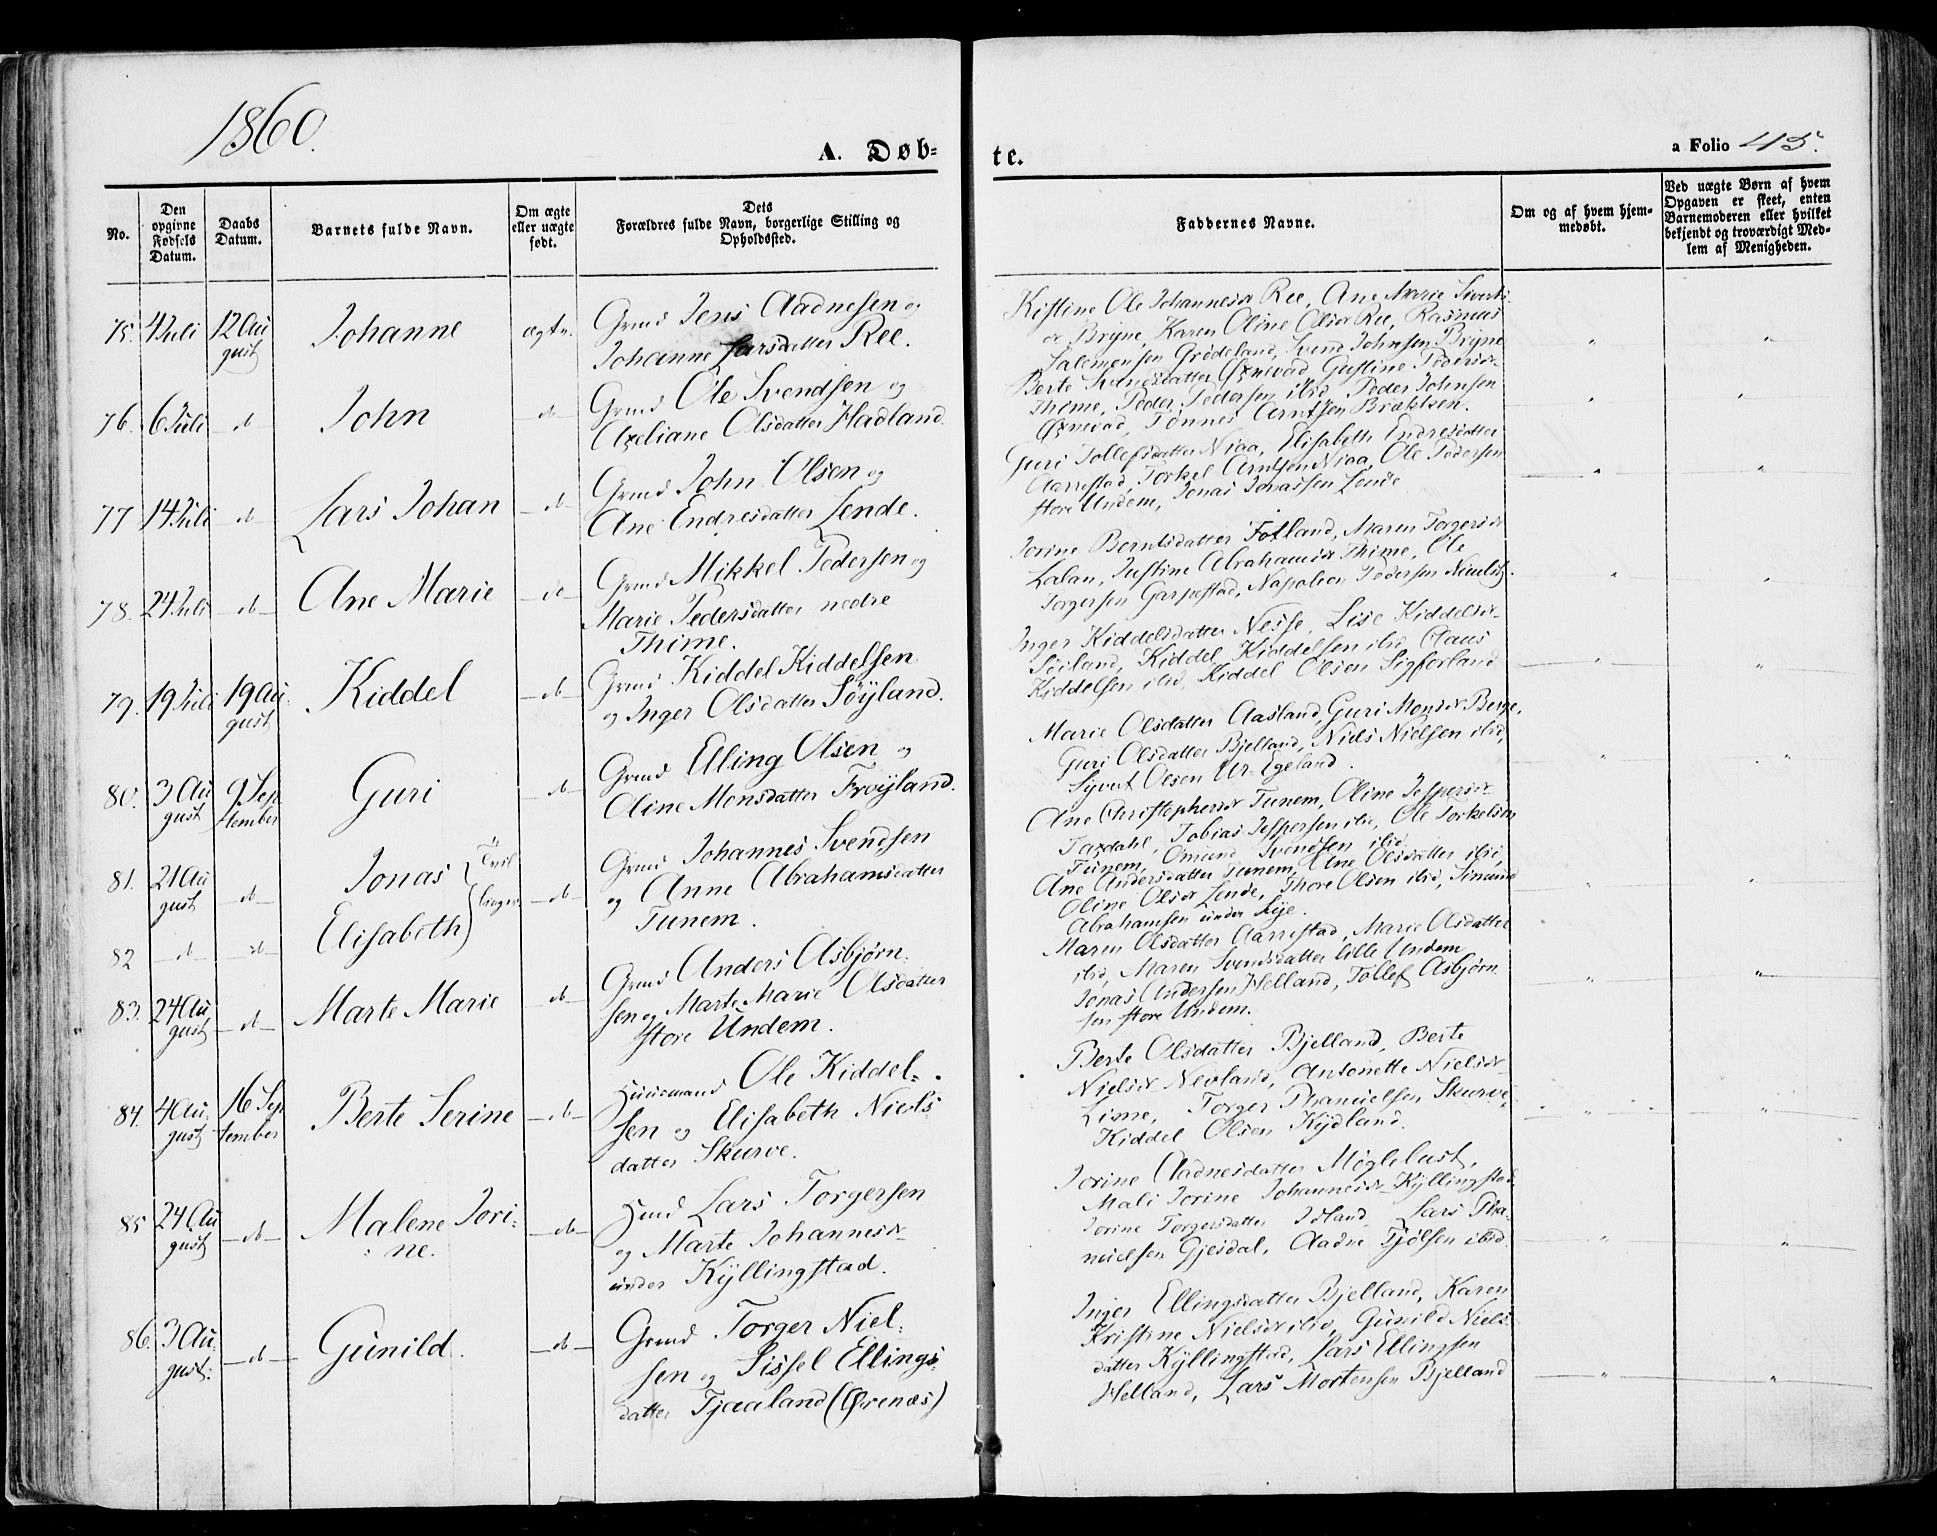 1860.
A. Døb-
te.
a Folio 45.
No.
Den opgivne Fødsels Datum.
Daabs Datum.
Barnets fulde Navn.
Om ægte eller uægte født.
Dets Forældres fulde Navn, borgerlige Stilling og Opholdssted.
Faddernes Navne.
Om og af hvem hjemmedøbt.
Ved uægte Børn af hvem Opgaven er skeet, enten Barnemoderen eller hvilket bekjendt og troværdigt Medlem af Menigheden.
75. 4 Juli 12 Au gust Johanne ægte.
Grmd Jens Aadnesen og
Johanne Larsdatter Ree.
Kistine Ole Johannesdr Ree, Ane Marie Siverts-
dr Bryne, Karen Oline Olsdr Ree, Rasmus
Salemonsen Grødeland, Svend Johnsen Bryne
76. 6 Juli d John d
Grmd Ole Svendsen og
Axeliane Olsdatter Hadland.
Berte Svendsdatter Øxnevad, Gustine Pedersdr
Thime, Peder Pedersen ibid, Peder Johnsen
Øxnevad, Tønnes Arntsen Brækken.
77 14 Juli d Lars Johan d
Grmd John Olsen og
Ane Endresdatter Lende.
Guri Tollefsdatter Niaa, Elisabeth Endresdatter
Aarrestad, Torkel Arntsen Niaa, Ole Pedersen
store Undem, Jonas Jonassen Lende
78. 24 Juli d Ane Marie do
Grmd Mikkel Pedersen og
Marie Pedersdatter nedre
Thime.
Jorine Berntsdatter Fotland, Maren Torgersdr
Lalan, Justine Abrahamsdr Thime, Ole
Torgersen Garpestad, Napoleon Pedersen
79. 19 Juli 19 Au- gust Kiddel d
Grmd Kiddel Kiddelsen
og Inger Olsdatter Søyland.
Inger Kiddelsdatter Nesse, Lise Kiddelsdr
Søiland, Kiddel Kiddelsen ibid, Claus
Kiddelsen ibid, Kiddel Olsen Sigferland
80. 3 Au gust 9 Sep tember Guri d
Grmd Elling Olsen og
Oline Monsdatter Frøyland.
Marie Olsdatter Aasland, Guri Monsdr Berge,
Guri Olsdatter Bjelland, Niels Nielsen ibid,
Syvert Olsen Ur-Egeland.
81. 21 Au gust d Jonas Tvil d
82 d d Elisabeth linger
Grmd Johannes Svendsen
og Anne Abrahamsdatter
Tunem.
Ane Christophersdr Tunem, Oline Jespersdr
Taxdahl, Tobias Jespersen ibid, Ole Torkelsen
Tunem, Omund Svendsen ibid.
Ane Andersdatter Tunem, Ane Olsdatter ibid,
Oline Olsdr Lende, Thore Olsen ibid, Simund
Abrahamsen under Lye.
83. 24 Au gust d Marte Marie d
Grmd Anders Asbjørn-
sen og Marte Marie Olsdatter
store Undem.
Maren Olsdatter Aarrestad, Marie Olsdatter
ibid, Maren Svendsdatter lille Undem,
Jonas Andersen Helland, Tollef Asbjørn-
sen store Undem.
84. 4 Au- gust 16 Sep tember Berte Serine d
Huusmand Ole Kiddel-
sen og Elisabeth Niels-
datter Skurve.
Berte Olsdatter Bjelland, Berte
Nielsdr Nevland, Antonette Nielsdr
Lime, Torger Thanielsen Skurve,
Kiddel Olsen Kydland.
85 24 Au gust d Malene Jori- ne. do
Hmd Lars Torgersen
og Marte Johannesdr
under Kyllingstad.
Jorine Aadnesdatter Møglebust,
Mali Jorine Johannesdr Kyllingstad
Jorine Torgersdatter Idland, Lars Tha-
nielsen Gjesdal, Aadne Fjølsen ibid.
86. 3 Au- gust: d Gunild. d
Grmd Torger Niel-
sen og Sissel Ellings-
datter Tjaaland (Ørenæs)
Inger Ellingsdatter Bjelland, Karen
Kristine Nielsdr ibid, Gunild Niels-
datter Kyllingstad, Lars Ellingsen
Helland, Lars Mortensen Bjelland